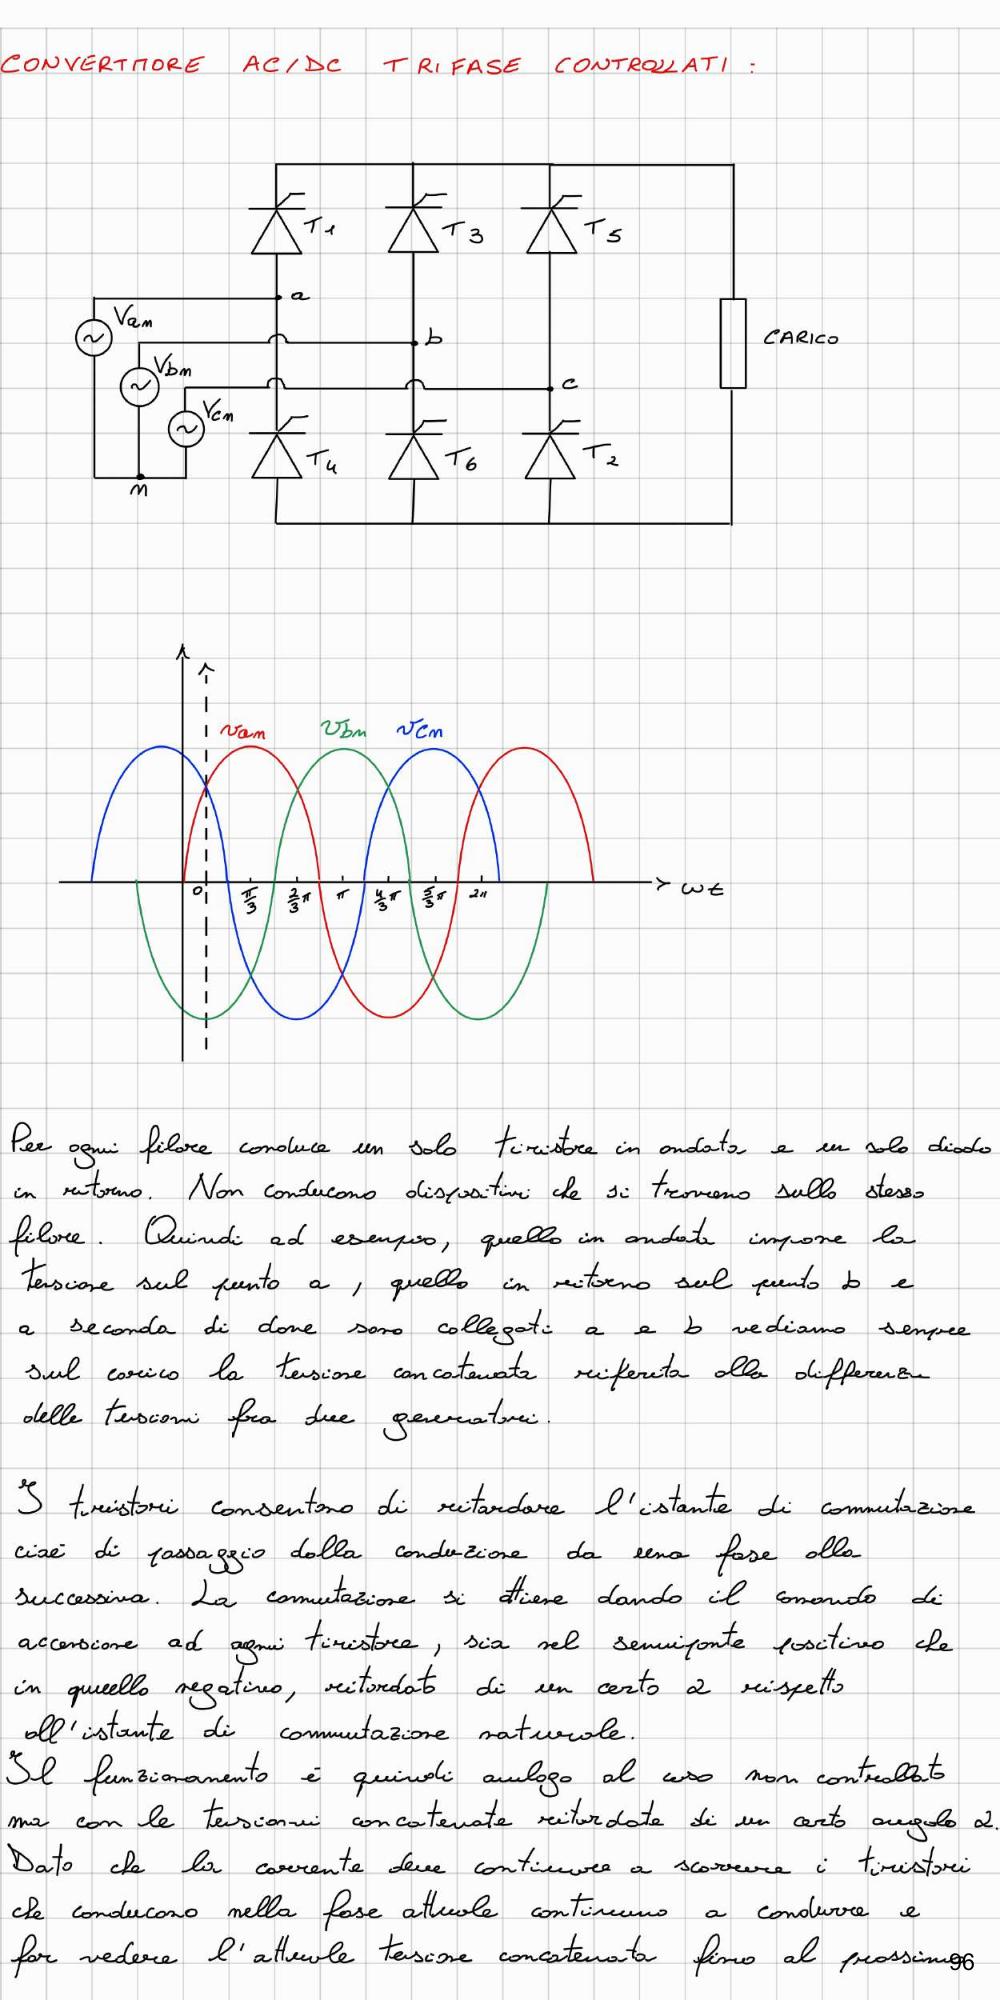 CONVERTITORE AC/DC TRIFASE CONTROLLATI :
T1 T3 T5
a
Van
b
CARICO
Vbn
c
Vcn
T4 T6 T2
n
van vbn vcn
0 π/3 2/3π π 4/3π 5/3π 2π ωt
Per ogni filare conduce un solo tiristore in andata e un solo diodo
in ritorno. Non conducono dispositivi che si trovano sullo stesso
filare. Quindi ad esempio, quello in andata impone la
tensione sul punto a, quello in ritorno sul punto b e
a seconda di dove sono collegati a e b vediamo sempre
sul carico la tensione concatenata riferita alla differenza
delle tensioni fra due generatori.
I tiristori consentono di ritardare l'istante di commutazione
cioè di passaggio dalla conduzione da una fase alla
successiva. La commutazione si ottiene dando il comando di
accensione ad ogni tiristore, sia nel semiponte positivo che
in quello negativo, ritardato di un certo α rispetto
all'istante di commutazione naturale.
Il funzionamento è quindi analogo al caso non controllato
ma con le tensioni concatenate ritardate di un certo angolo α.
Dato che la corrente deve continuare a scorrere i tiristori
che conducono nella fase attuale continuano a condurre e
far vedere l'attuale tensione concatenata fino al prossimo
96